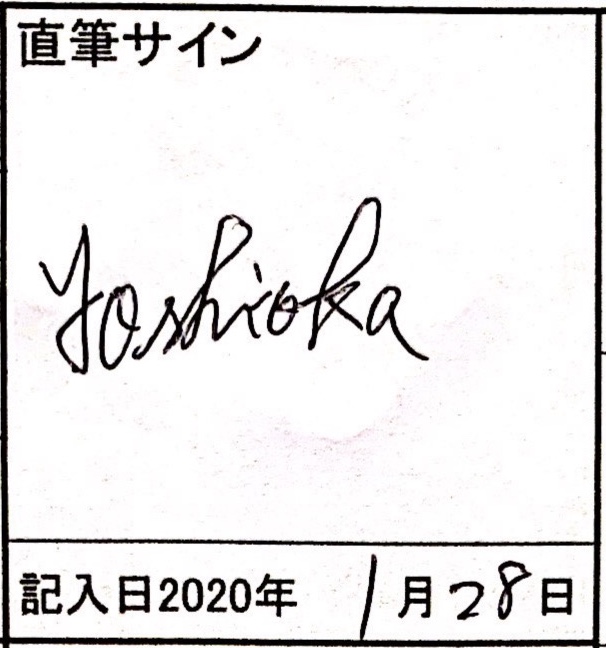 直筆サイン
Yoshioka
記入日2020年 1月28日